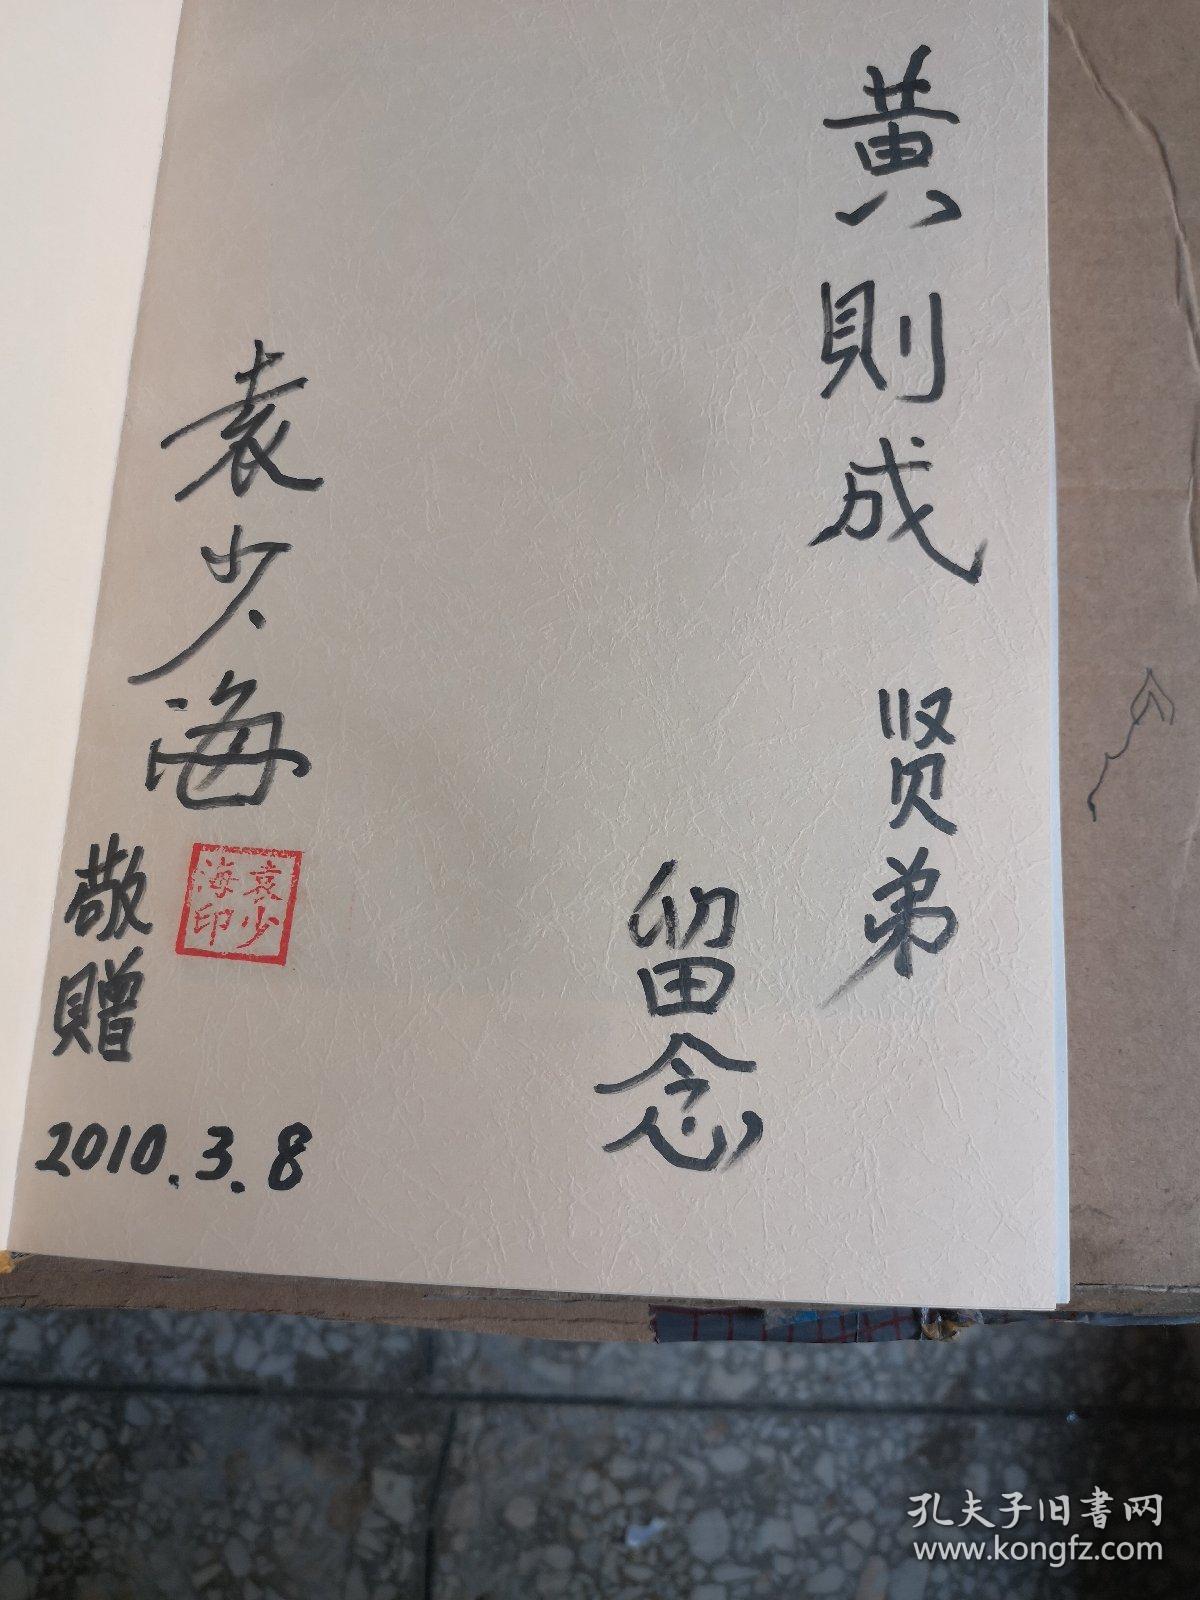 黄則成 贤弟
留念
袁少海
敬贈
袁少
海印
2010.3.8
孔夫子旧書网
www.kongfz.com